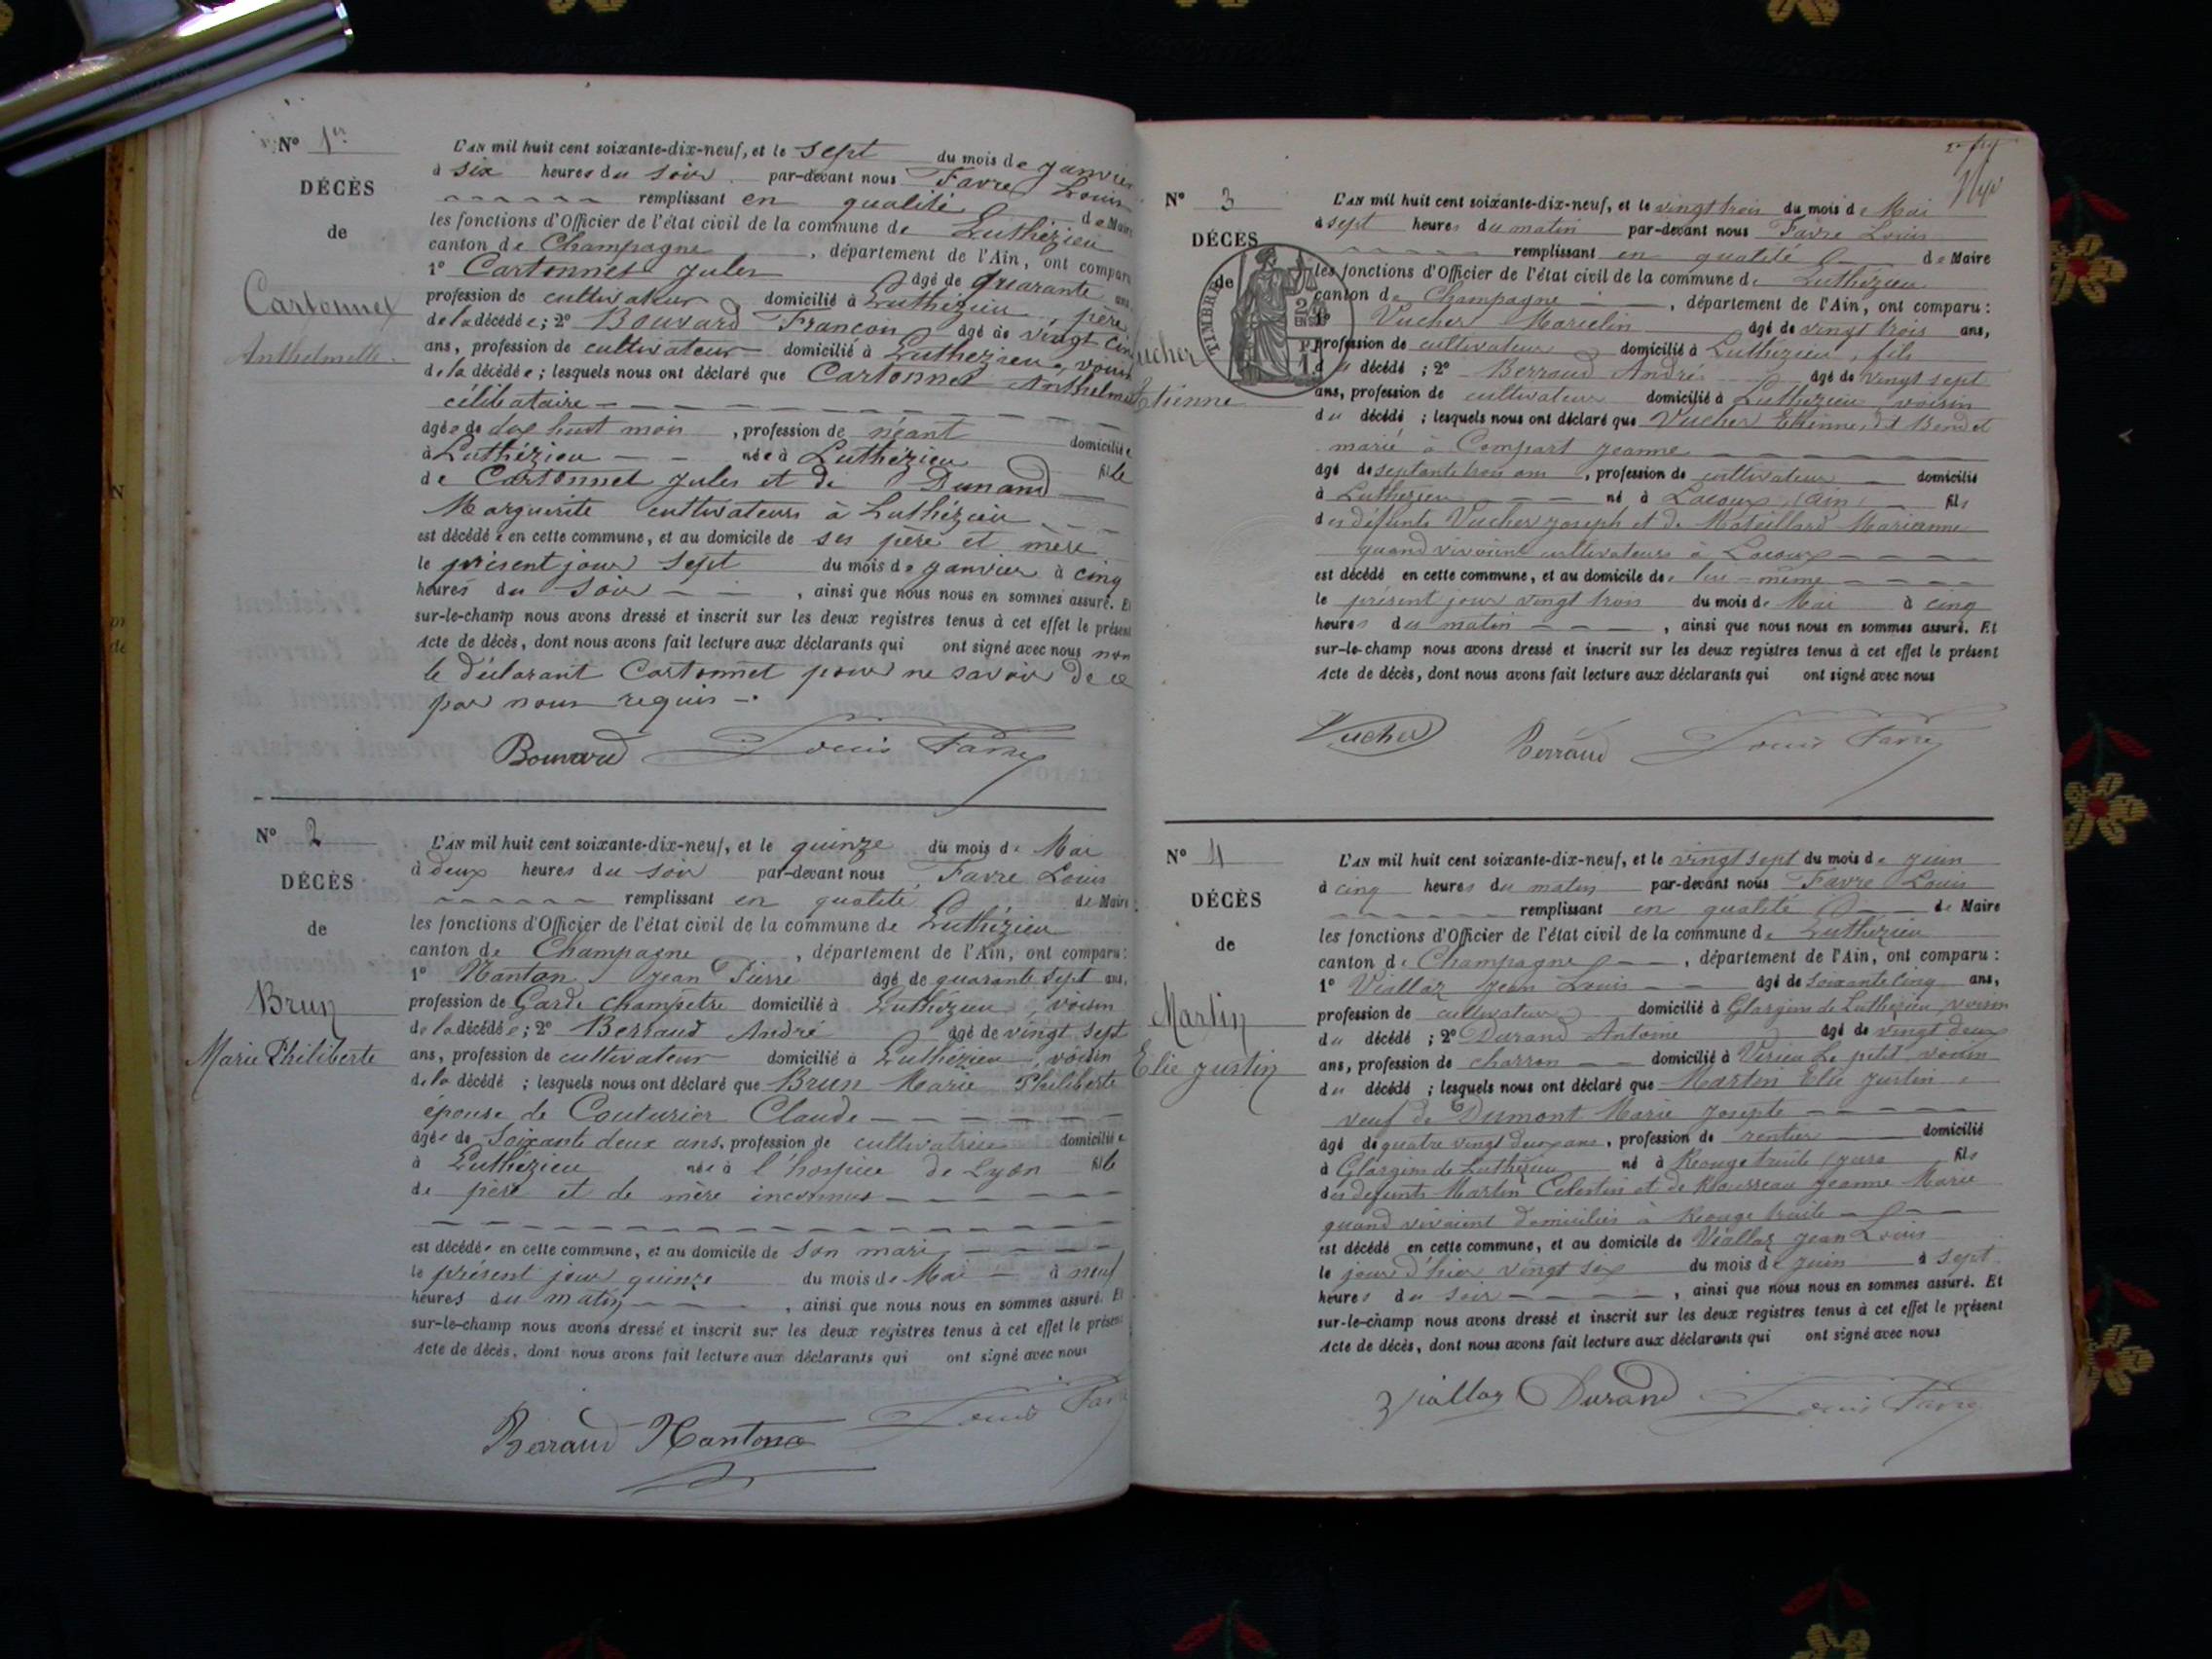 N° 1er
DÉCÈS
de
Cartonnet
Anthelmette.
L'AN mil huit cent soixante-dix-neuf, et le sept du mois de janvier
à six heures du soir par-devant nous Favre Louis
remplissant en qualité de Maire
les fonctions d'Officier de l'état civil de la commune de Luthézieu
canton de Champagne, département de l'Ain, ont comparu
1° Cartonnet Jules âgé de quarante ans
profession de cultivateur domicilié à Luthézieu, père
de la décédée; 2° Bouvard François âgé de vingt cinq
ans, profession de cultivateur domicilié à Luthézieu, voisin
de la décédée; lesquels nous ont déclaré que Cartonnet Anthelmette
célibataire
âgée de dix huit mois, profession de néant domiciliée
à Luthézieu née à Luthézieu fille
de Cartonnet Jules et de Dunand
Marguerite cultivateurs à Luthézieu
est décédée en cette commune, et au domicile de ses père et mère
le présent jour sept du mois de janvier à cinq
heures du soir, ainsi que nous nous en sommes assuré. Et
sur-le-champ nous avons dressé et inscrit sur les deux registres tenus à cet effet le présent
Acte de décès, dont nous avons fait lecture aux déclarants qui ont signé avec nous non
le déclarant Cartonnet pour ne savoir de ce
par nous requis -.
Bouvard Louis Favre
N° 2
DÉCÈS
de
Brun
Marie Philiberte
L'AN mil huit cent soixante-dix-neuf, et le quinze du mois de Mai
à deux heures du soir par-devant nous Favre Louis
remplissant en qualité de Maire
les fonctions d'Officier de l'état civil de la commune de Luthézieu
canton de Champagne, département de l'Ain, ont comparu:
1° Nanton Jean Pierre âgé de quarante sept ans,
profession de Garde champêtre domicilié à Luthézieu, voisin
de la décédée; 2° Berraud André âgé de vingt sept
ans, profession de cultivateur domicilié à Luthézieu, voisin
de la décédé; lesquels nous ont déclaré que Brun Marie Philiberte
épouse de Couturier Claude
âgée de soixante deux ans, profession de cultivatrice domiciliée
à Luthézieu née à l'hospice de Lyon fille
de père et de mère inconnus
est décédée en cette commune, et au domicile de son mari
le présent jour quinze du mois de Mai à neuf
heures du matin, ainsi que nous nous en sommes assuré. Et
sur-le-champ nous avons dressé et inscrit sur les deux registres tenus à cet effet le présent
Acte de décès, dont nous avons fait lecture aux déclarants qui ont signé avec nous
Berraud Nanton Louis Favre
N° 3
DÉCÈS
de
Vucher
Etienne
TIMBRE
L'AN mil huit cent soixante-dix-neuf, et le vingt trois du mois de Mai
à sept heures du matin par-devant nous Favre Louis
remplissant en qualité de Maire
les fonctions d'Officier de l'état civil de la commune de Luthézieu
canton de Champagne, département de l'Ain, ont comparu:
1° Vucher Marcelin âgé de vingt trois ans,
profession de cultivateur domicilié à Luthézieu, fils
du décédé; 2° Berraud André âgé de vingt sept
ans, profession de cultivateur domicilié à Luthézieu voisin
du décédé; lesquels nous ont déclaré que Vucher Etienne, dit
marié à Compart Jeanne
âgé de septante trois ans, profession de cultivateur domicilié
à Luthézieu né à Lacoux (Ain) fils
des défunts Vucher Joseph et de Marianne
quand vivaient cultivateurs à Lacoux
est décédé en cette commune, et au domicile de lui-même
le présent jour vingt trois du mois de Mai à cinq
heures du matin, ainsi que nous nous en sommes assuré. Et
sur-le-champ nous avons dressé et inscrit sur les deux registres tenus à cet effet le présent
Acte de décès, dont nous avons fait lecture aux déclarants qui ont signé avec nous
Vucher Berraud Louis Favre
N° 4
DÉCÈS
de
Martin
Elie Justin
L'AN mil huit cent soixante-dix-neuf, et le vingt sept du mois de juin
à cinq heures du matin par-devant nous Favre Louis
remplissant en qualité de Maire
les fonctions d'Officier de l'état civil de la commune de Luthézieu
canton de Champagne, département de l'Ain, ont comparu:
1° Viallaz Jean Louis âgé de soixante cinq ans,
profession de cultivateur domicilié à Glargins de Luthézieu, voisin
du décédé; 2° Durand Antoine âgé de vingt deux
ans, profession de charron domicilié à Virieu le petit voisin
du décédé; lesquels nous ont déclaré que Martin Elie Justin
veuf de Dumont Marie Josepte
âgé de quatre vingt deux ans, profession de rentier domicilié
à Glargins de Luthézieu né à (jura fils
des défunts Martin Celestin et de Rousseau Jeanne Marie
quand vivaient domiciliés à
est décédé en cette commune, et au domicile de Viallaz Jean Louis
le jour d'hier vingt six du mois de juin à sept
heures du soir, ainsi que nous nous en sommes assuré. Et
sur-le-champ nous avons dressé et inscrit sur les deux registres tenus à cet effet le présent
Acte de décès, dont nous avons fait lecture aux déclarants qui ont signé avec nous
Viallaz Durand Louis Favre